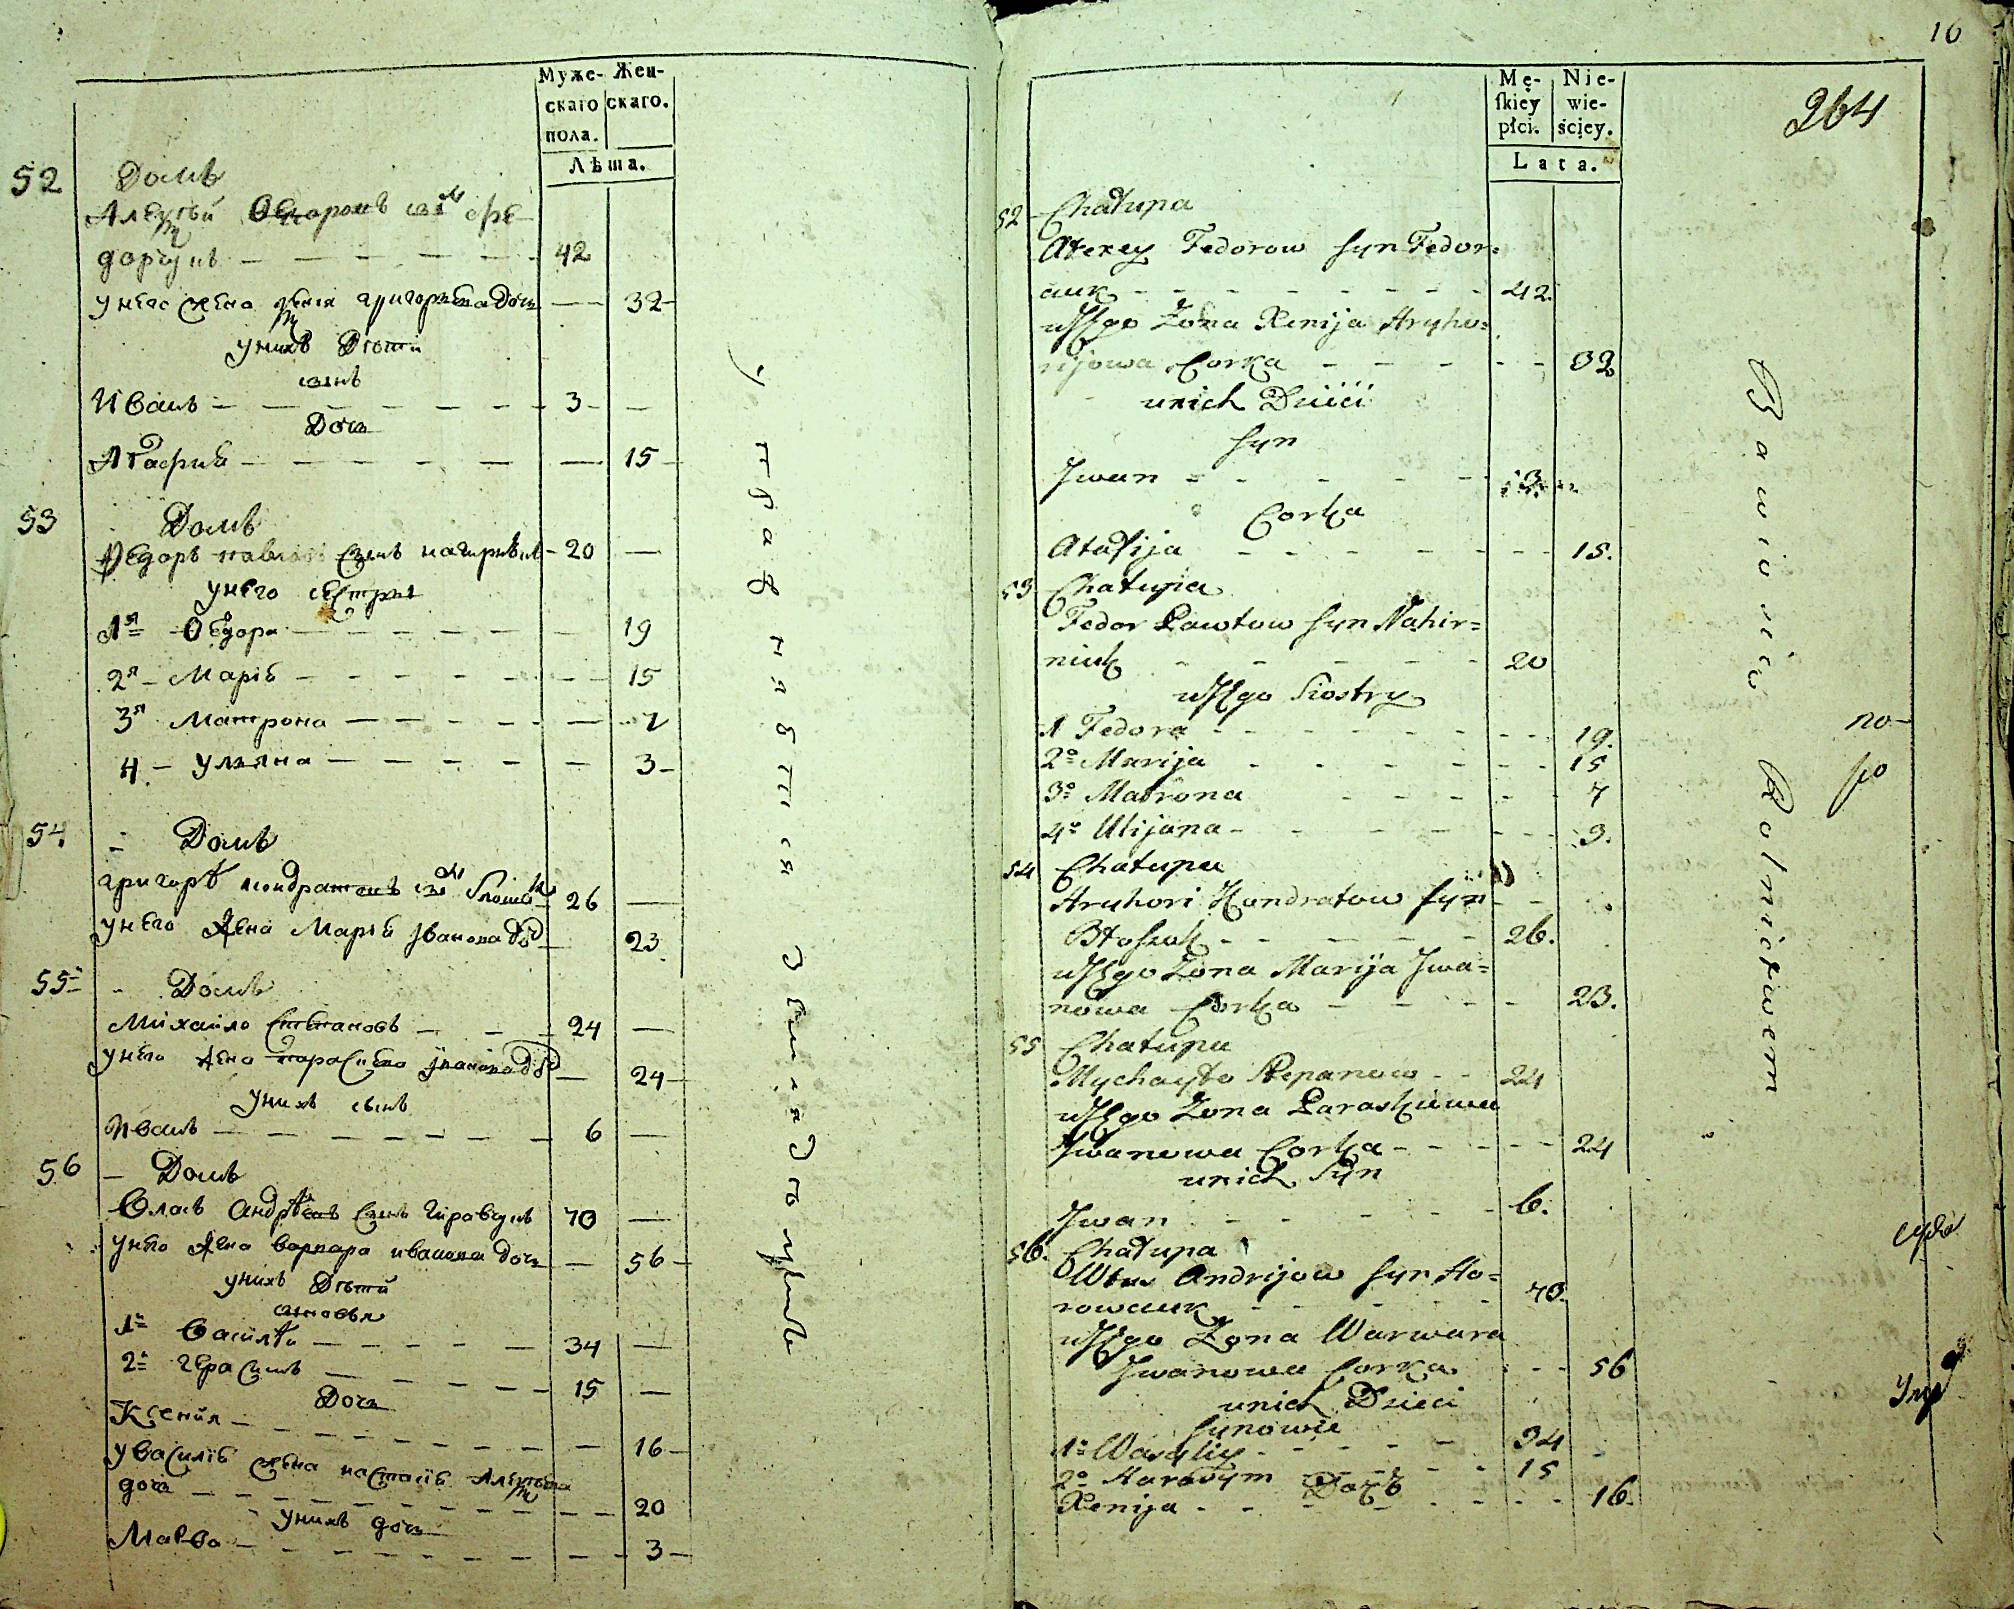 Муже-
скаго
пола.
Жен-
скаго.
Лѣта.
52
Домъ
Алексѣй Ѳедоровъ сынъ Фе
дорчукъ — 42
у него жена Ксенія григорьева дочь — 32
у нихъ Дѣти
сынъ
Иванъ — 3
Дочь
Агафия — 15
53
Домъ
Ѳедоръ сынъ нагирнякъ 20
у него сестры
1я Ѳедора — 19
2я Марія — 15
3я Матрона — 7
4 — Уляна — 3
54.
Домъ
григорѣ кондратовъ сынъ 26
у него Жена Марія Іванова дочь — 23
55
Домъ
Михайло Степановъ — 24
у него Жена параскева Іванова дочь — 24
у нихъ сынъ
Иванъ — 6
56
Домъ
Власъ Андрѣевъ Сынъ 70
у него Жена варвара иванова дочь — 56
у нихъ Дѣти
сыновья
1й Василѣй — 34
2й герасимъ — 15
Дочь
Ксения — 16
у Василія жена настасія Алексѣева
дочь — 20
у нихъ дочь
Мавра — 3
Управляется Экономіею
16
264
Mę-
skiey
płci.
Nie-
wie-
ściey.
Lata.
52 Chałupa
Ałexey Fedorow syn Fedor=
czuk — 42.
u Jego Żona Xenija Hryho=
rijowa Corka — 32
u nich Dzieci
syn
Jwan — 3.
Corka
Atafija — 15.
53 Chałupa
Fedor Pawłow syn Nahir=
niuk — 20
u Jego Siostry
1 Fedora — 19.
2º Marija — 15
3º Matrona — 7
4º Ulijana — 3.
54 Chałupa
Hryhori Kondratow syn
26.
u Jego Żona Marija Jwa=
nowa Corka — 23.
55 Chałupa
Mychayło Stepanow — 24
u Jego Żona Paraskiewa
Jwanowa Corka — 24
u nich Syn
Jwan — 6.
56. Chałupa
Włas Andrijow syn Ho=
rowczuk — 70.
u Jego Żona Warwara
Jwanowa Corka — 56
u nich Dzieci
synowie
1º Wasyliy — 34
2º Harasym — 15
Дочь
Xenija — 16.
Bawią się Rolnictwem
по